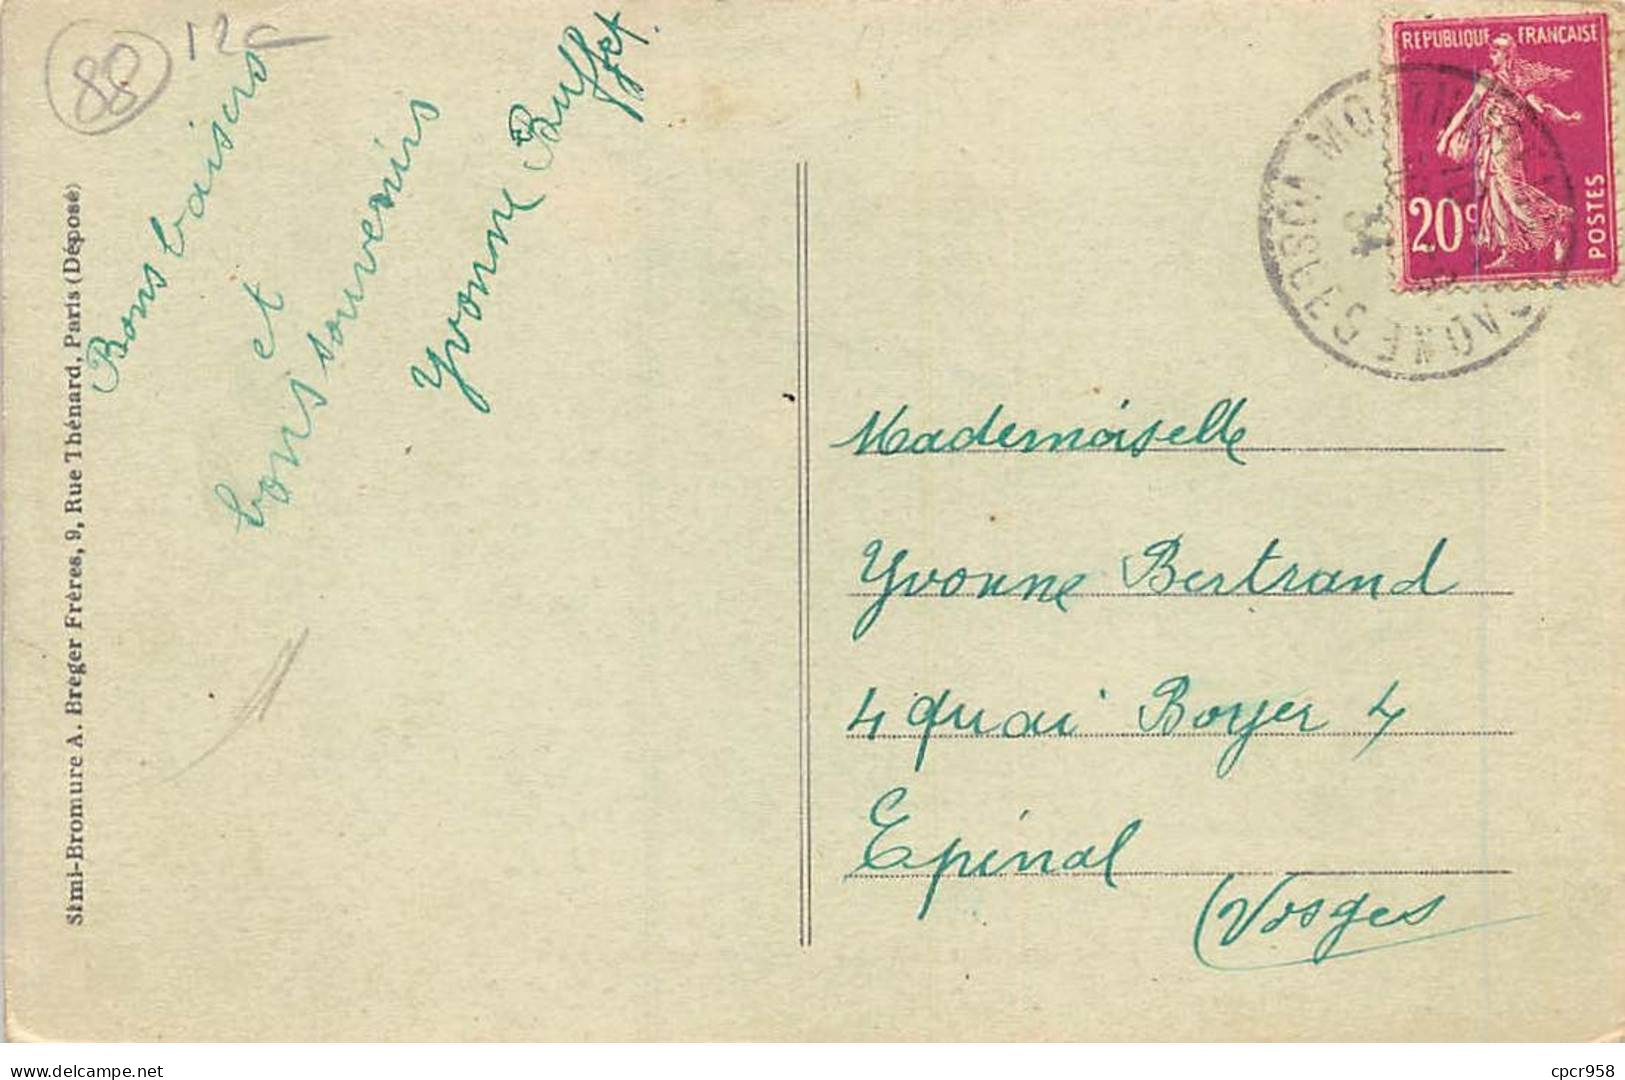 88
12a
Bons baisers
et
bons souvenirs
Yvonne Buffet.
Simi-Bromure A. Breger Frères, 9, Rue Thénard, Paris (Déposé)
REPUBLIQUE FRANÇAISE
20c
POSTES
VOSGES
Mademoiselle
Yvonne Bertrand
4 quai Boyer 4
Epinal
(Vosges
delcampe.net
cpcr958